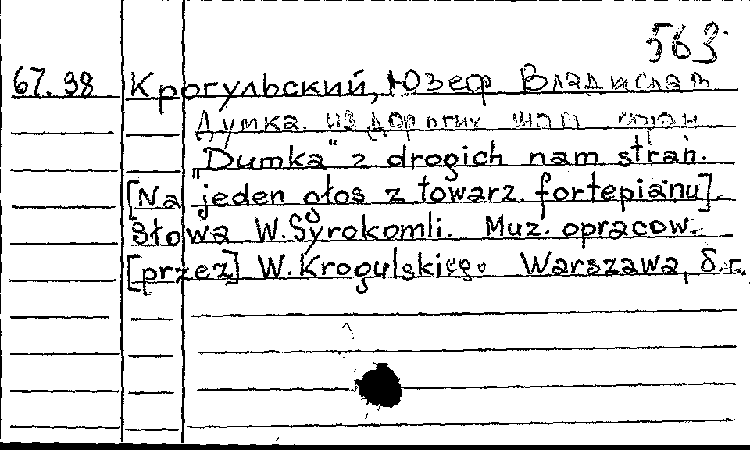 563
67.98 Крогульский, Юзеф Владислав
Думка из дорогих
„Dumka" z drogich nam stran.
[Na jeden głos z towarz. fortepianu].
Słowa W. Syrokomli. Muz. opracow.
[przez] W. Krogulskiego. Warszawa, б.г.